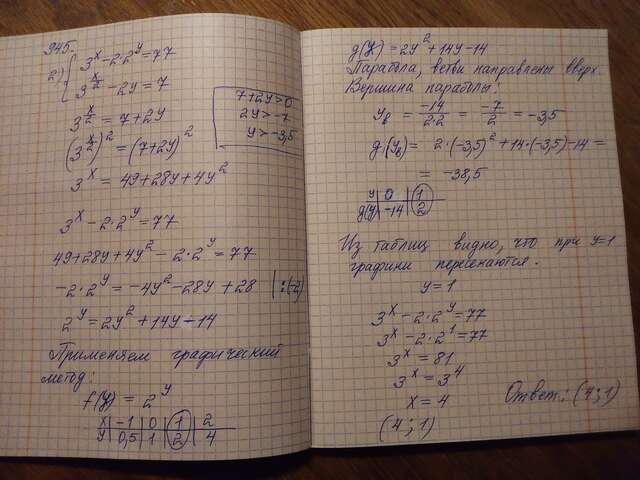 945.
2) { 3^x - 2·2^y = 77
3^(x/2) - 2y = 7
3^(x/2) = 7+2y
(3^(x/2))^2 = (7+2y)^2
3^x = 49+28y+4y^2
7+2y>0
2y>-7
y>-3,5
3^x - 2·2^y = 77
49+28y+4y^2 - 2·2^y = 77
-2·2^y = -4y^2 - 28y + 28 | :(-2)
2^y = 2y^2 + 14y - 14
Применяем графический
метод:
f(y) = 2^y
x | -1 | 0 | 1 | 2
y | 0,5 | 1 | 2 | 4
g(y) = 2y^2 + 14y - 14
Парабола, ветви направлены вверх.
Вершина параболы:
y_в = -14/2·2 = -7/2 = -3,5
g(y_в) = 2·(-3,5)^2 + 14·(-3,5) - 14 =
= -38,5
y | 0 | 1
g(y) | -14 | 2
Из таблиц видно, что при y=1
графики пересекаются.
y=1
3^x - 2·2^y = 77
3^x - 2·2^1 = 77
3^x = 81
3^x = 3^4
x = 4
(4;1)
Ответ: (4;1)